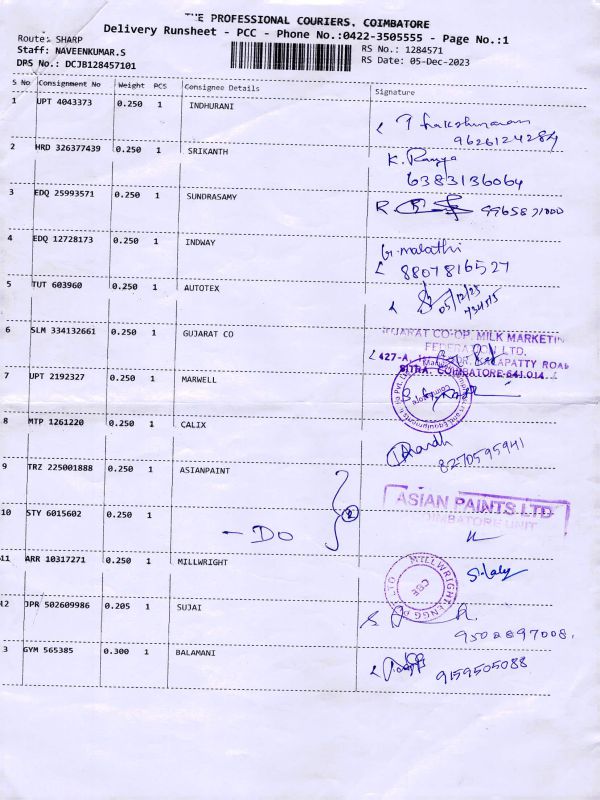 THE PROFESSIONAL COURIERS, COIMBATORE
Delivery Runsheet - PCC - Phone No.:0422-3505555 - Page No.:1
Route: SHARP
Staff: NAVEENKUMAR.S
DRS No.: DCJB128457101
RS No.: 1284571
RS Date: 05-Dec-2023
S No Consignment No Weight PCS Consignee Details Signature
1 UPT 4043373 0.250 1 INDHURANI
9626124284
2 HRD 326377439 0.250 1 SRIKANTH
K. Ramya
6383136064
3 EDQ 25993571 0.250 1 SUNDRASAMY
R.
4 EDQ 12728173 0.250 1 INDWAY
G. malathi
8807816527
5 TUT 603960 0.250 1 AUTOTEX
05/12/23
6 SLM 334132661 0.250 1 GUJARAT CO
GUJARAT CO-OP. MILK MARKETIN
FEDERATION LTD.
427-A, KALAPATTY ROAD
SITRA, COIMBATORE-641 014.
7 UPT 2192327 0.250 1 MARWELL
8 MTP 1261220 0.250 1 CALIX
8270595941
9 TRZ 225001888 0.250 1 ASIANPAINT
ASIAN PAINTS LTD
COIMBATORE UNIT
10 STY 6015602 0.250 1 - DO 2
11 ARR 10317271 0.250 1 MILLWRIGHT
MILLWRIGHT ENGG P LTD
CBE
12 JPR 502609986 0.205 1 SUJAI
9502897008.
3 GYM 565385 0.300 1 BALAMANI
9159505088